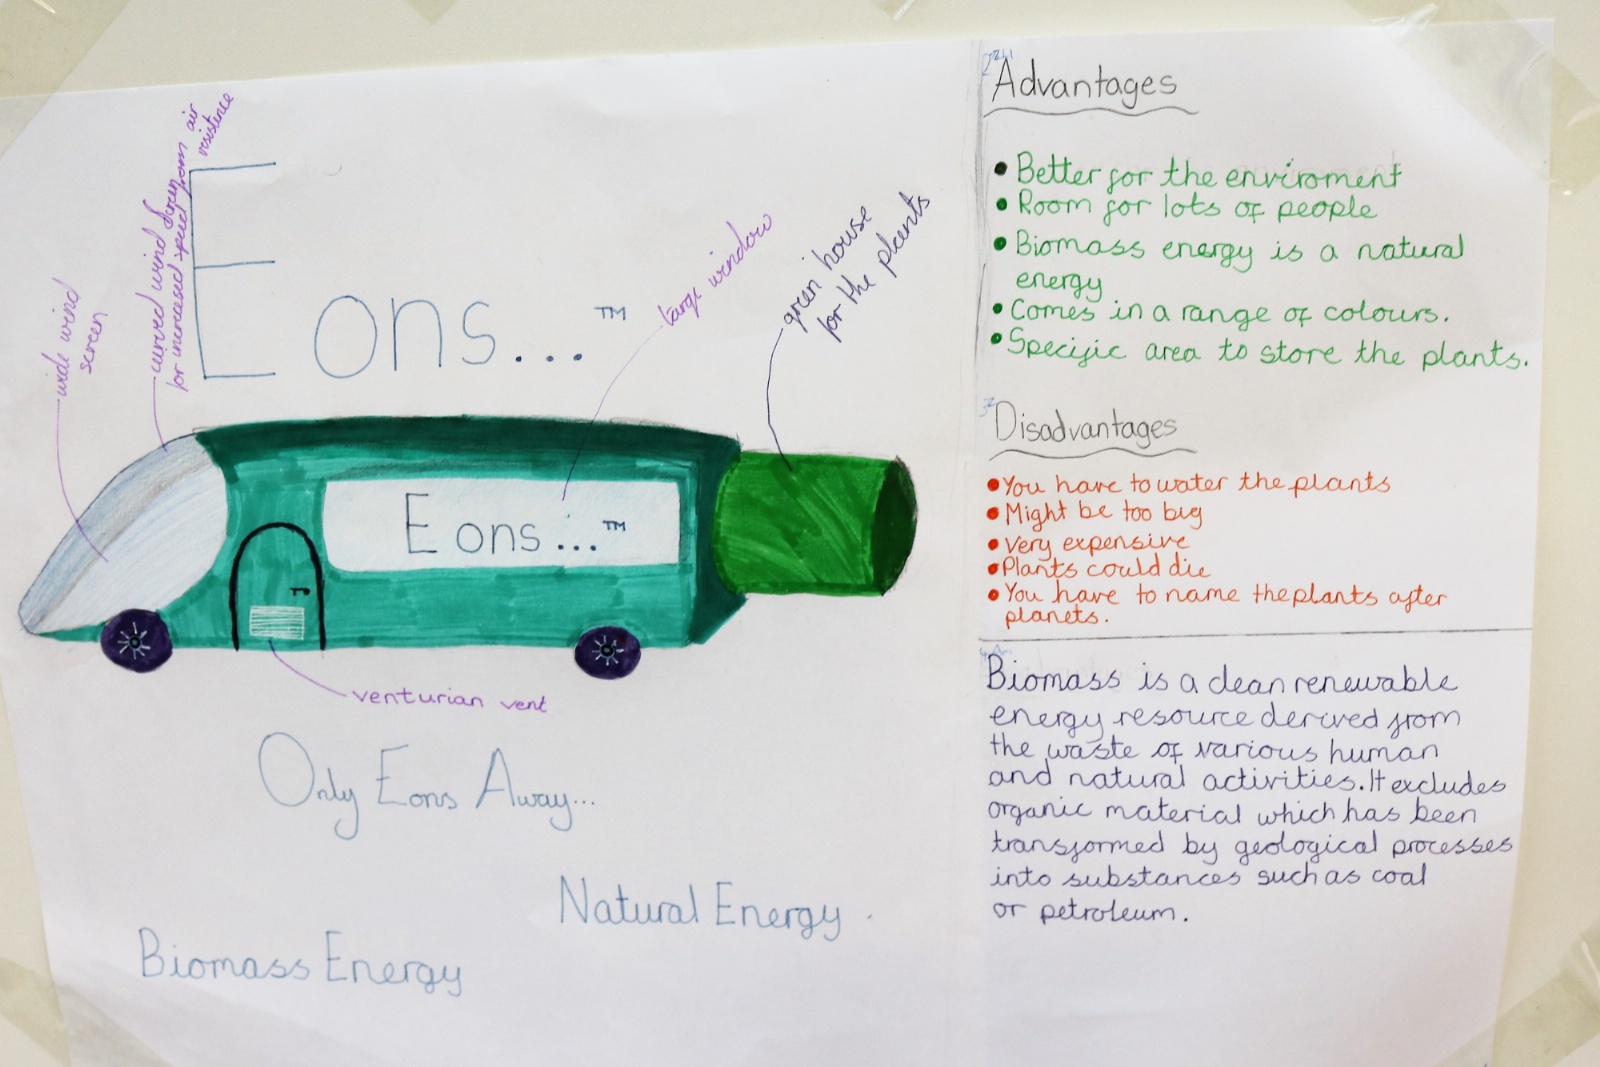 wide wind
screen
curved wind screen
for increased speed from air
resistence
Eons...™
large window
green house
for the plants
Eons...™
venturian vent
Only Eons Away...
Natural Energy
Biomass Energy
Advantages
• Better for the enviroment
• Room for lots of people
• Biomass energy is a natural
energy
• Comes in a range of colours.
• Specific area to store the plants.
Disadvantages
• You have to water the plants
• Might be too big
• Very expensive
• Plants could die
• You have to name the plants after
planets.
Biomass is a clean renewable
energy resource derived from
the waste of various human
and natural activities. It excludes
organic material which has been
transformed by geological processes
into substances such as coal
or petroleum.